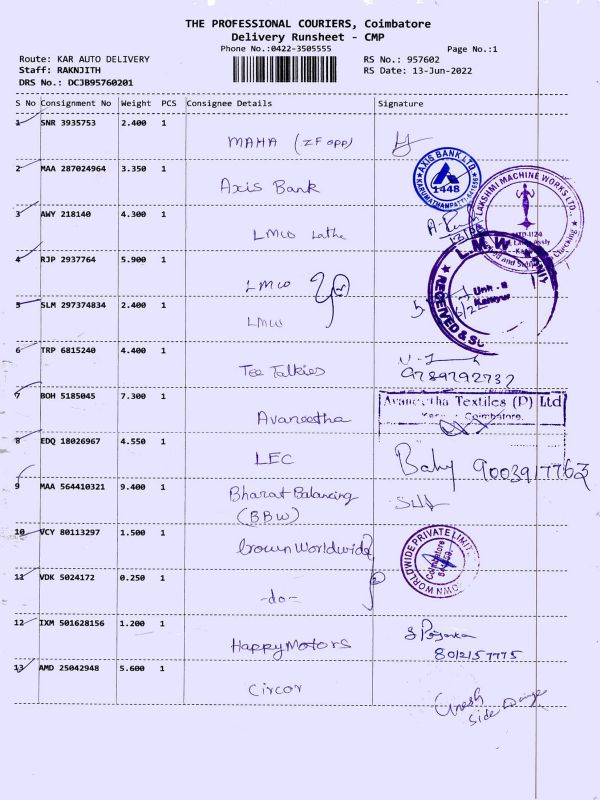 THE PROFESSIONAL COURIERS, Coimbatore
Delivery Runsheet - CMP
Phone No.:0422-3505555
Page No.:1
Route: KAR AUTO DELIVERY
RS No.: 957602
Staff: RAKNJITH
RS Date: 13-Jun-2022
DRS No.: DCJB95760201
S No Consignment No Weight PCS Consignee Details Signature
1 SNR 3935753 2.400 1
MAHA (ZF opp)
2 MAA 287024964 3.350 1
Axis Bank
AXIS BANK LTD.
KARUMATHAMPATTI
1448
3 AWY 218140 4.300 1
LMW Lathe
LAKSHMI MACHINE WORKS LTD.,
4 RJP 2937764 5.900 1
LMW
L.M.W.
Unit - II
Kaniyur
RECEIVED &
5 SLM 297374834 2.400 1
LMW
6 TRP 6815240 4.400 1
Tee Talkies
9789792732
7 BOH 5185045 7.300 1
Avaneetha
Avaneetha Textiles (P) Ltd
Coimbatore.
8 EDQ 18026967 4.550 1
LEC
Baby 9003917763
9 MAA 564410321 9.400 1
Bharat Balancing
(BBW)
10 VCY 80113297 1.500 1
Crown Worldwide
CROWN WORLDWIDE PRIVATE LIMITED
Coimbatore
11 VDK 5024172 0.250 1
-do-
12 IXM 501628156 1.200 1
Happy Motors
S Priyanka
8012157775
13 AMD 25042948 5.600 1
Circor